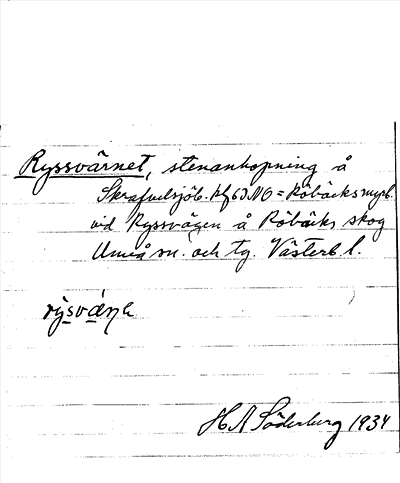 Ryssvärnet, stenanhopning å
Skrafvelsjöb. kf 63 NO = Röbäcksmyrb.
vid Ryssvägen å Röbäcks skog
Umeå sn. och tg. Västerb l.
H A Söderberg 1934